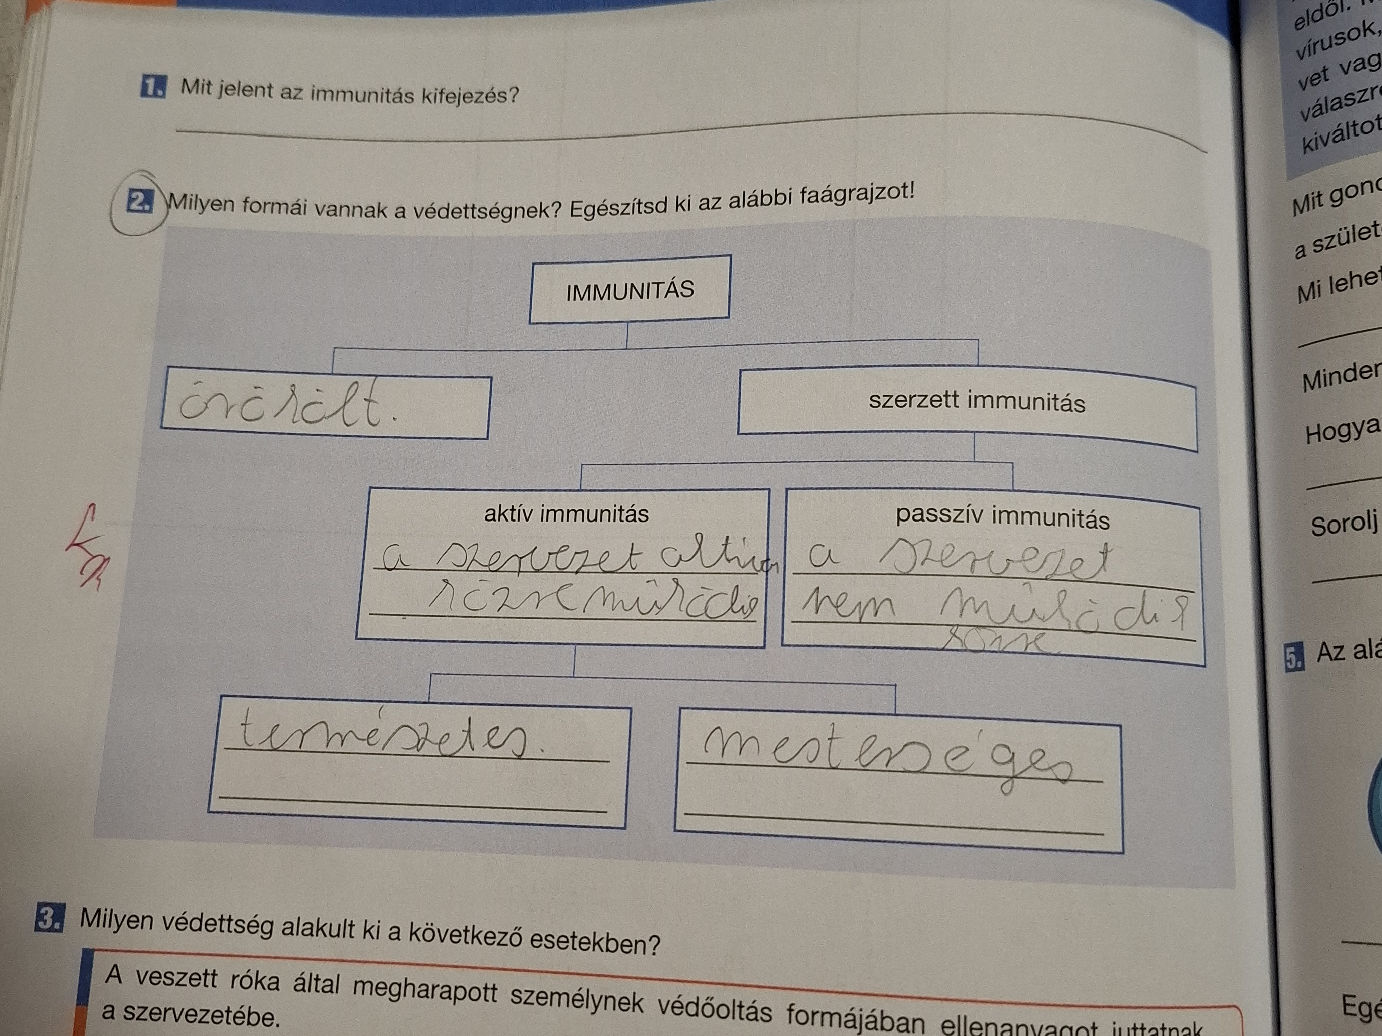 1. Mit jelent az immunitás kifejezés?
2. Milyen formái vannak a védettségnek? Egészítsd ki az alábbi faágrajzot!
IMMUNITÁS
öröklött.
szerzett immunitás
aktív immunitás
a szervezet
részre működik
passzív immunitás
a szervezet
nem működik
természetes.
mesterséges
3. Milyen védettség alakult ki a következő esetekben?
A veszett róka által megharapott személynek védőoltás formájában ellenanyagot juttatnak
a szervezetébe.
eldől.
vírusok,
vet vag
válaszre
kiváltot
Mit gond
a szület
Mi lehet
Minder
Hogya
Sorolj
5. Az alá
Egé